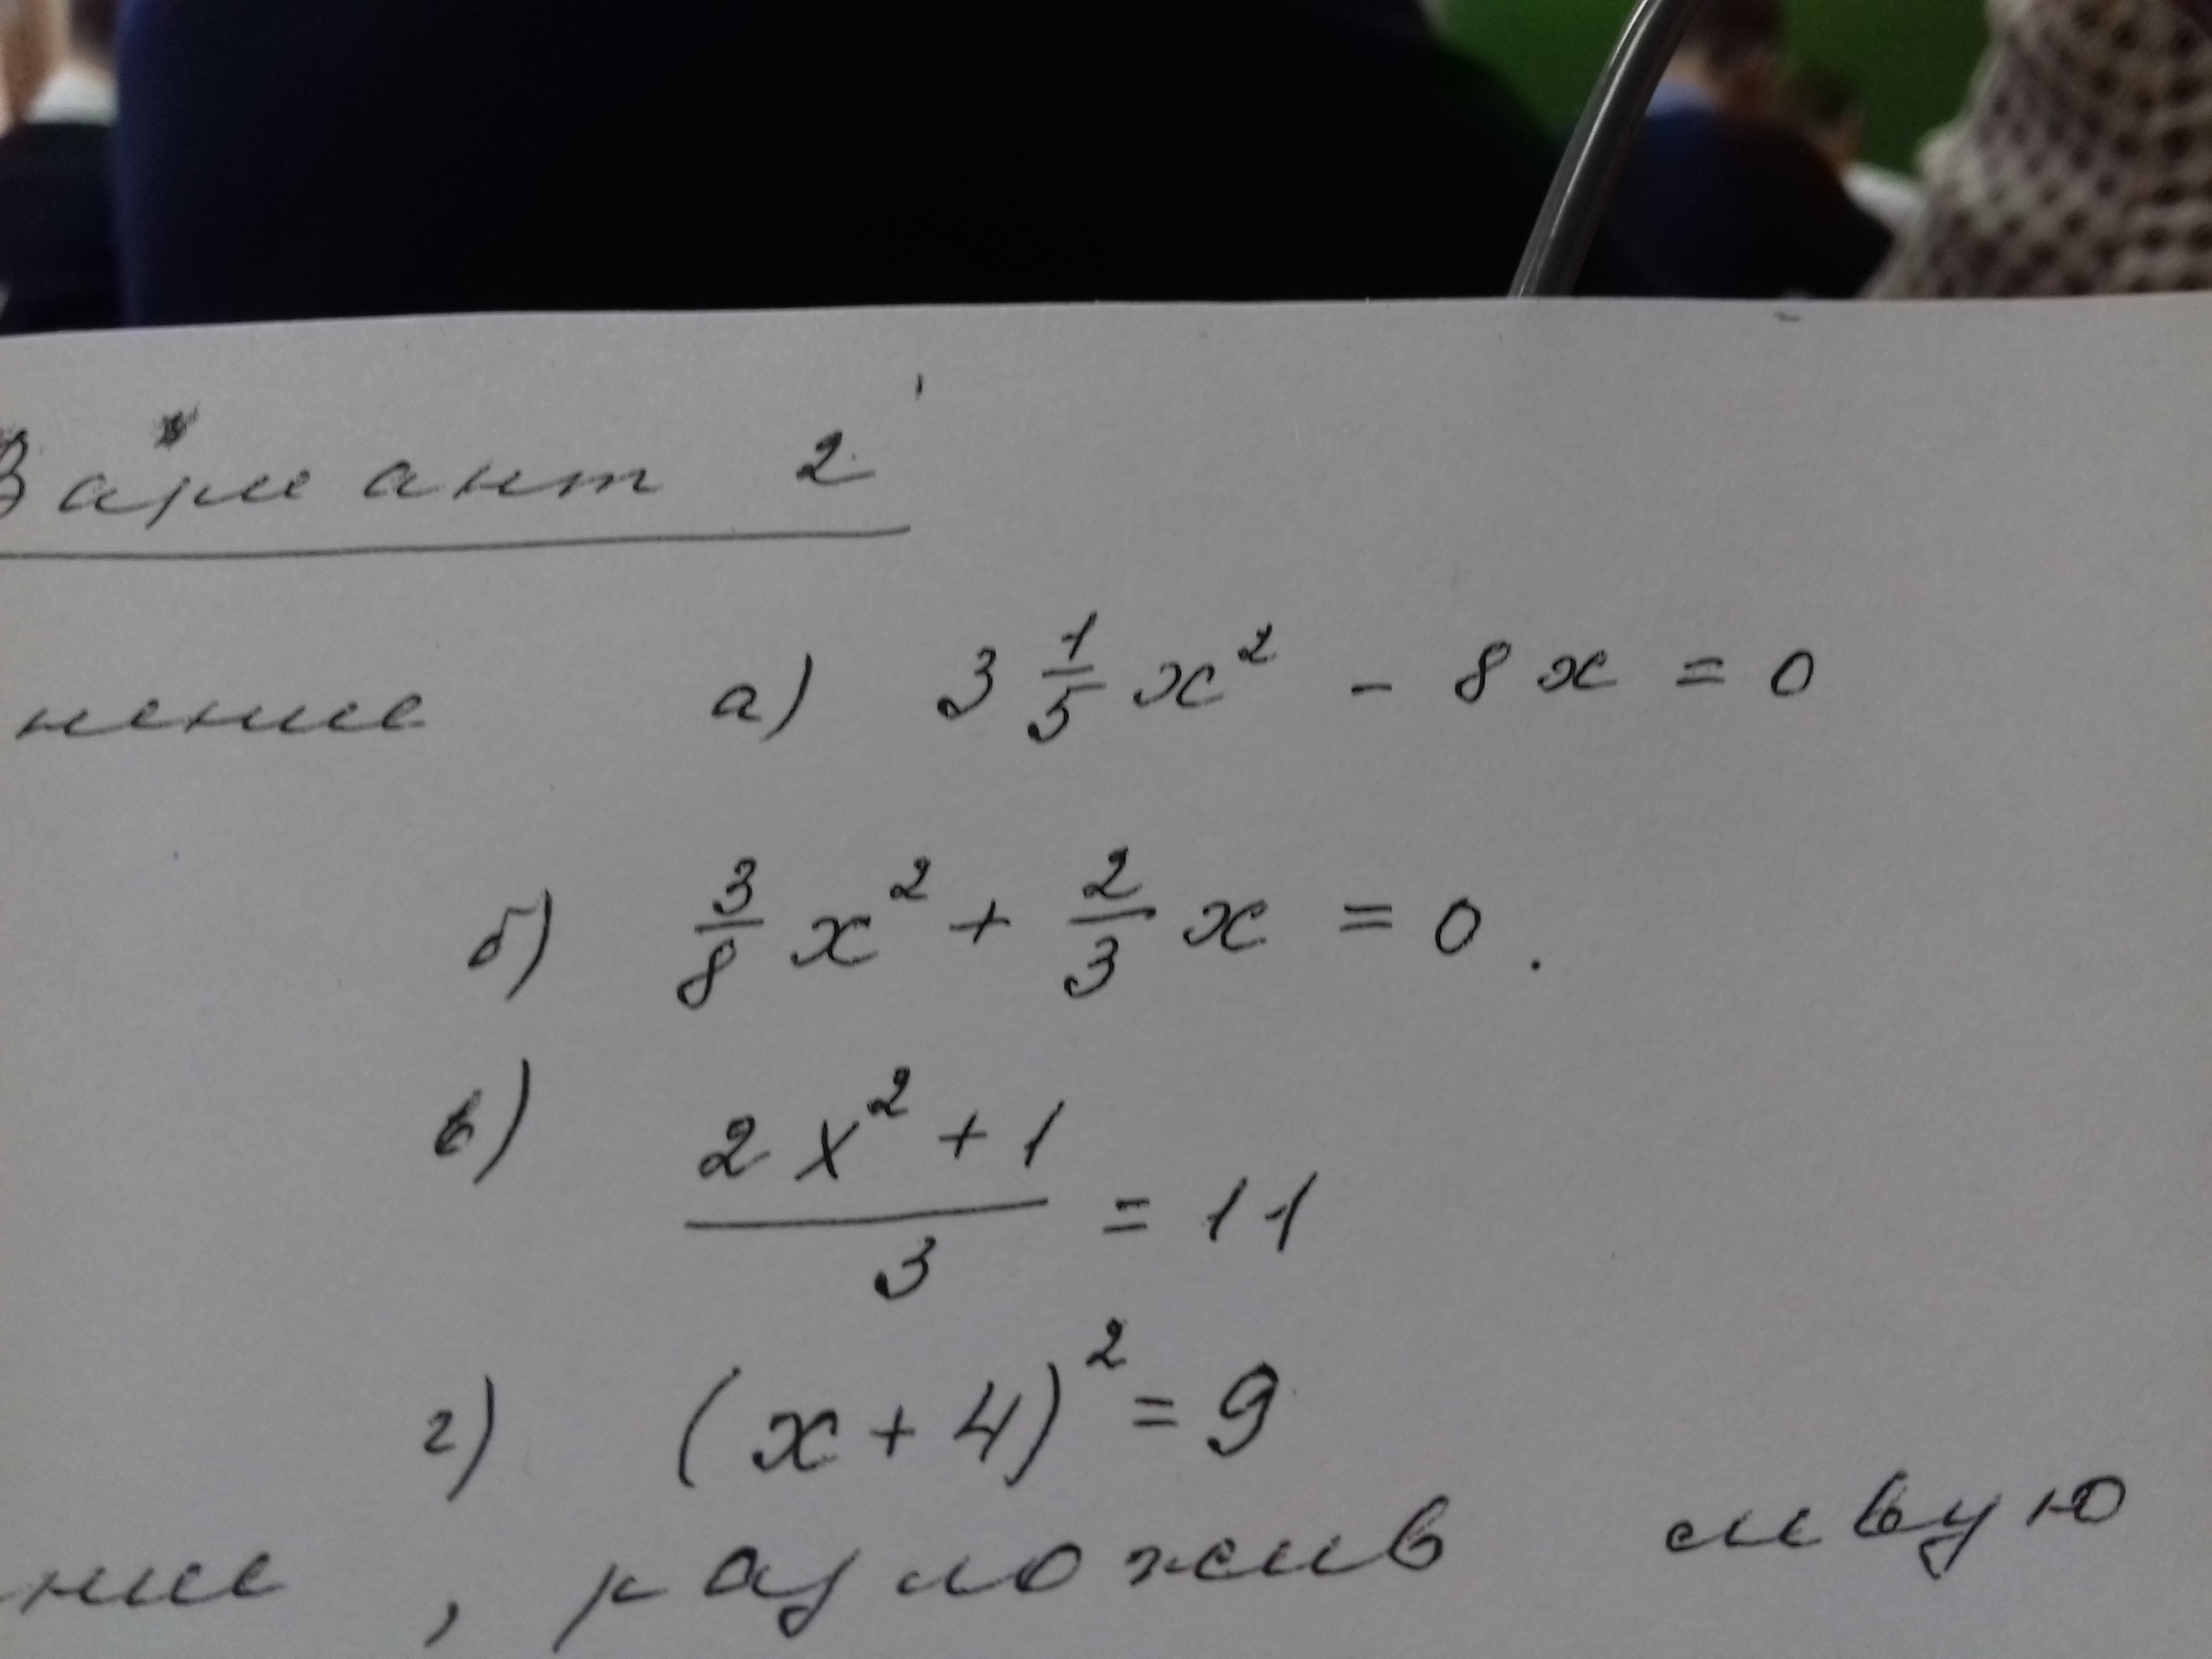 Вариант 2
нение а) 3 1/5 x² - 8x = 0
б) 3/8 x² + 2/3 x = 0.
в) (2x² + 1)/3 = 11
г) (x + 4)² = 9
ние, разложив левую